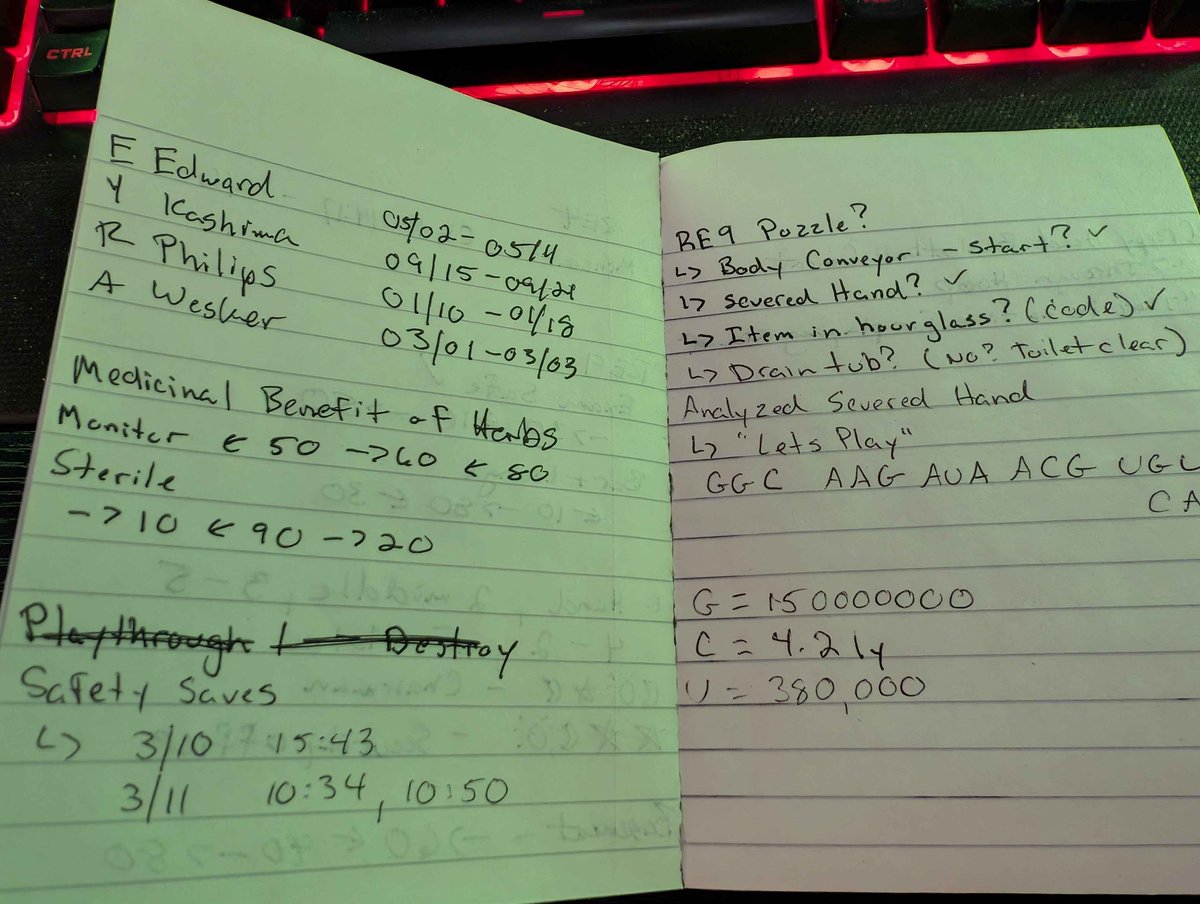 CTRL
E Edward 05/02 - 05/4
Y Kashima 09/15 - 09/21
R Philips 01/10 - 01/18
A Wesker 03/01 - 03/03
Medicinal Benefit of Herbs
Monitor ← 50 → 60 ← 80
Sterile
→ 10 ← 90 → 20
Playthrough 1 - Destroy
Safety Saves
↳ 3/10 15:43
3/11 10:34, 10:50
RE9 Puzzle?
↳ Body Conveyor - start? ✓
↳ severed Hand? ✓
↳ Item in hourglass? (code) ✓
↳ Drain tub? (No? Toilet clear)
Analyzed Severed Hand
↳ "Lets Play"
GGC AAG AUA ACG UGU
CA
G = 150000000
C = 4.2 ly
U = 380,000